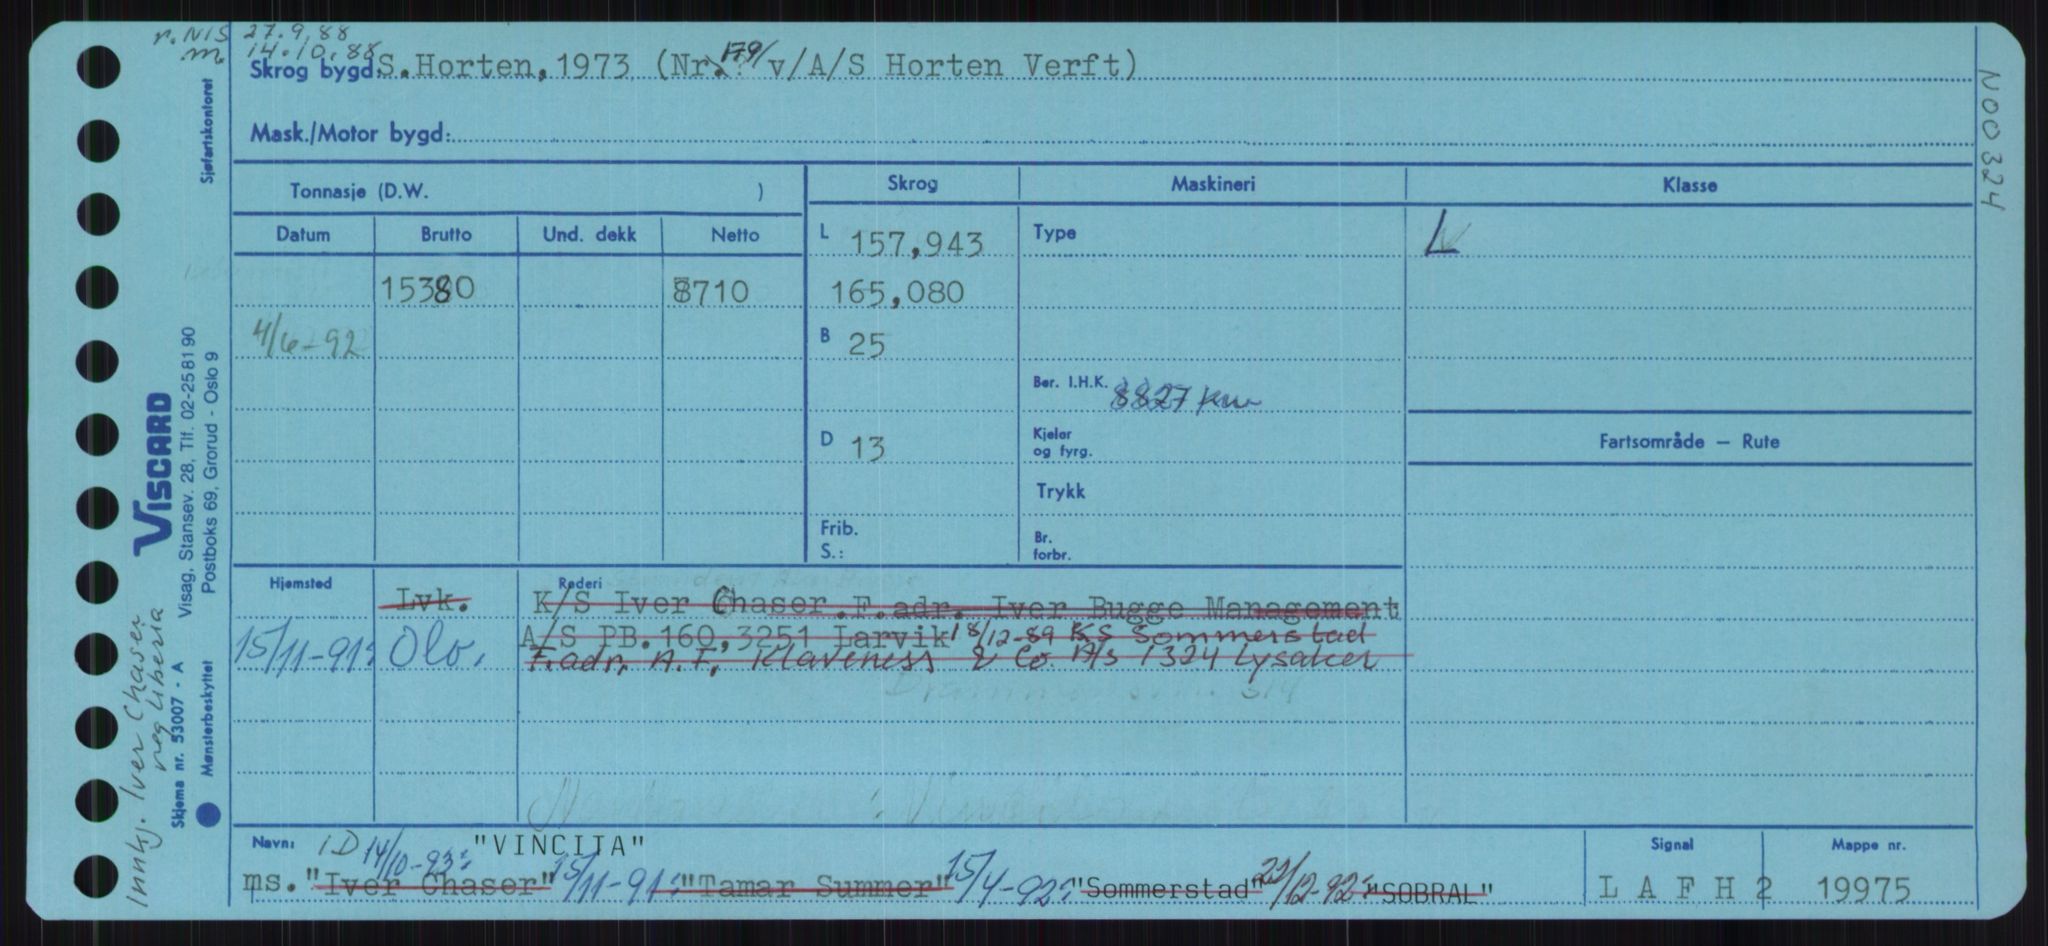 r. NIS 27.9.88
m. 14.10.88
Skrog bygd: S. Horten, 1973 (Nr. 179/ v/A/S Horten Verft)
Mask./Motor bygd:
N00324
Sjøfartskontoret
Tonnasje (D.W. )
Skrog Maskineri Klasse
Datum Brutto Und. dekk Netto
L 157,943 Type L
15380 8710 165,080
4/6-92 B 25
Ber. I.H.K. 8827 kw
D 13 Kjeler
og fyrg.
Fartsområde – Rute
Trykk
Frib.
S.:
Br.
forbr.
VISCARD
Visag, Stansev. 28, Tlf. 02-258190
Postboks 69, Grorud - Oslo 9
Skjema nr. 53007 - A
Mønsterbeskyttet
Innkj. Iver Chaser
reg Liberia
Hjemsted Rederi
Lvk. K/S Iver Chaser. F.adr. Iver Bugge Management
15/11-91: Olo. A/S PB.160,3251 Larvik 18/12-89 KS Sommerstad
F.adr. A.F. Klaveness & Co. A/S 1324 Lysaker
Navn: ID 14/10-93: "VINCITA"
ms. "Iver Chaser" 15/11-91: "Tamar Summer" 15/4-92: "Sommerstad" 22/12-92: "SOBRAL"
Signal
LAFH2
Mappe nr.
19975